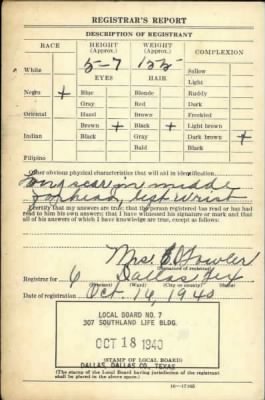 REGISTRAR'S REPORT
DESCRIPTION OF REGISTRANT
RACE HEIGHT (Approx.) WEIGHT (Approx.) COMPLEXION
5-7 155
White Sallow
EYES HAIR Light
Negro + Blue Blonde Ruddy
Gray Red Dark
Oriental Hazel Brown Freckled
Brown + Black + Light brown +
Indian Black Gray Dark brown
Bald Black
Filipino
Other obvious physical characteristics that will aid in identification
Long scar in middle
forehead, left wrist
I certify that my answers are true; that the person registered has read or has had
read to him his own answers; that I have witnessed his signature or mark and that
all of his answers of which I have knowledge are true, except as follows:
Mrs. E. O. Fowler
(Signature of registrar)
Registrar for 6 Dallas Tex
(Precinct) (Ward) (City or county) (State)
Date of registration Oct. 16, 1940
LOCAL BOARD NO. 7
307 SOUTHLAND LIFE BLDG.
OCT 18 1940
(STAMP OF LOCAL BOARD)
DALLAS, DALLAS CO., TEXAS
(The stamp of the Local Board having jurisdiction of the registrant
shall be placed in the above space.)